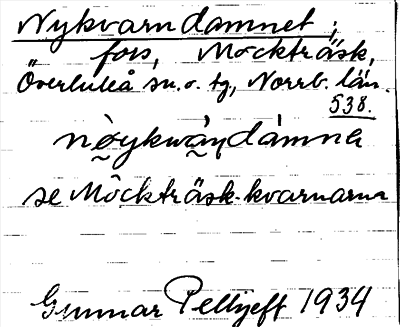 Nykvarndamnet;
fors, Mockträsk,
Överluleå sn. o. tg, Norrb. län.
538.
nò̰ykwà̰ṇdámna
se Môckträsk-kvarnarna
Gunnar Pellijeff 1934